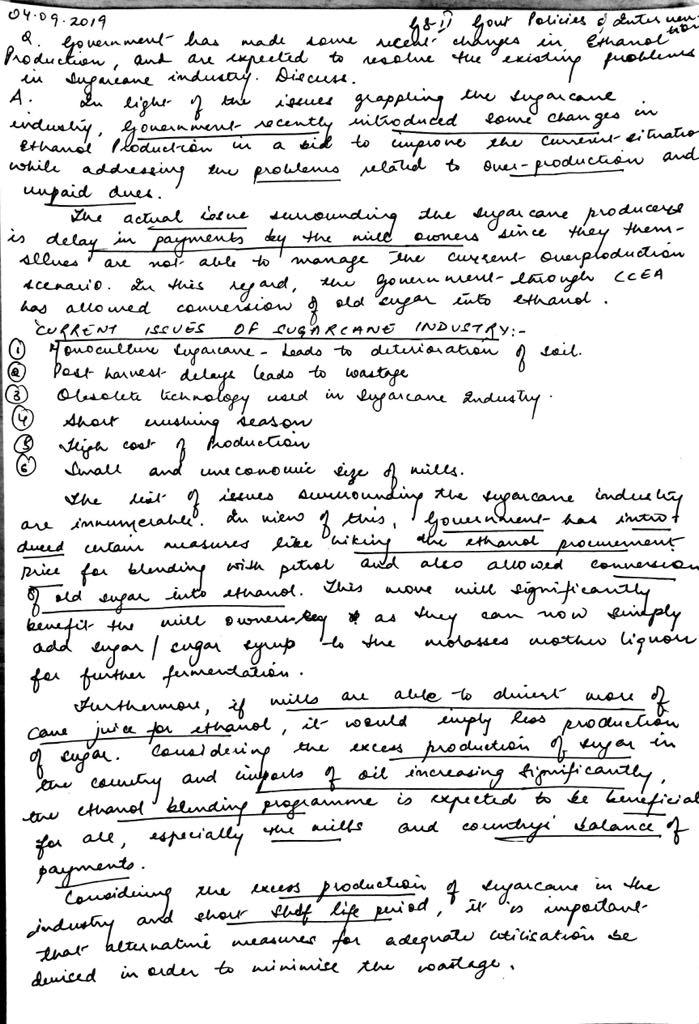 04.09.2019 GS II Govt Policies & Intervention
Q. Government has made some recent changes in Ethanol
Production, and are expected to resolve the existing problems
in Sugarcane industry. Discuss.
A. In light of the issues grappling the sugarcane
industry, Government recently introduced some changes in
Ethanol Production in a bid to improve the current situation
while addressing the problems related to over-production and
unpaid dues.
The actual issue surrounding the sugarcane producers
is delay in payments by the mill owners since they them-
selves are not able to manage the current overproduction
scenario. In this regard, the government through CCEA
has allowed conversion of old sugar into ethanol.
CURRENT ISSUES OF SUGARCANE INDUSTRY:-
① Monoculture sugarcane - leads to deterioration of soil.
② Post harvest delays leads to wastage
③ Obsolete technology used in Sugarcane Industry.
④ Short crushing season
⑤ High cost of Production
⑥ Small and uneconomic size of mills.
The list of issues surrounding the sugarcane industry
are innumerable. In view of this, Government has intro-
duced certain measures like hiking the ethanol procurement
price for blending with petrol and also allowed conversion
of old sugar into ethanol. This move will significantly
benefit the mill owners as they can now simply
add sugar/sugar syrup to the molasses mother liquor
for further fermentation.
Furthermore, if mills are able to divert more of
cane juice for ethanol, it would imply less production
of sugar. Considering the excess production of sugar in
the country and imports of oil increasing significantly,
the ethanol blending programme is expected to be beneficial
for all, especially the mills and country's balance of
payments.
Considering the excess production of sugarcane in the
industry and short shelf life period, it is important
that alternative measures for adequate utilisation be
devised in order to minimise the wastage.